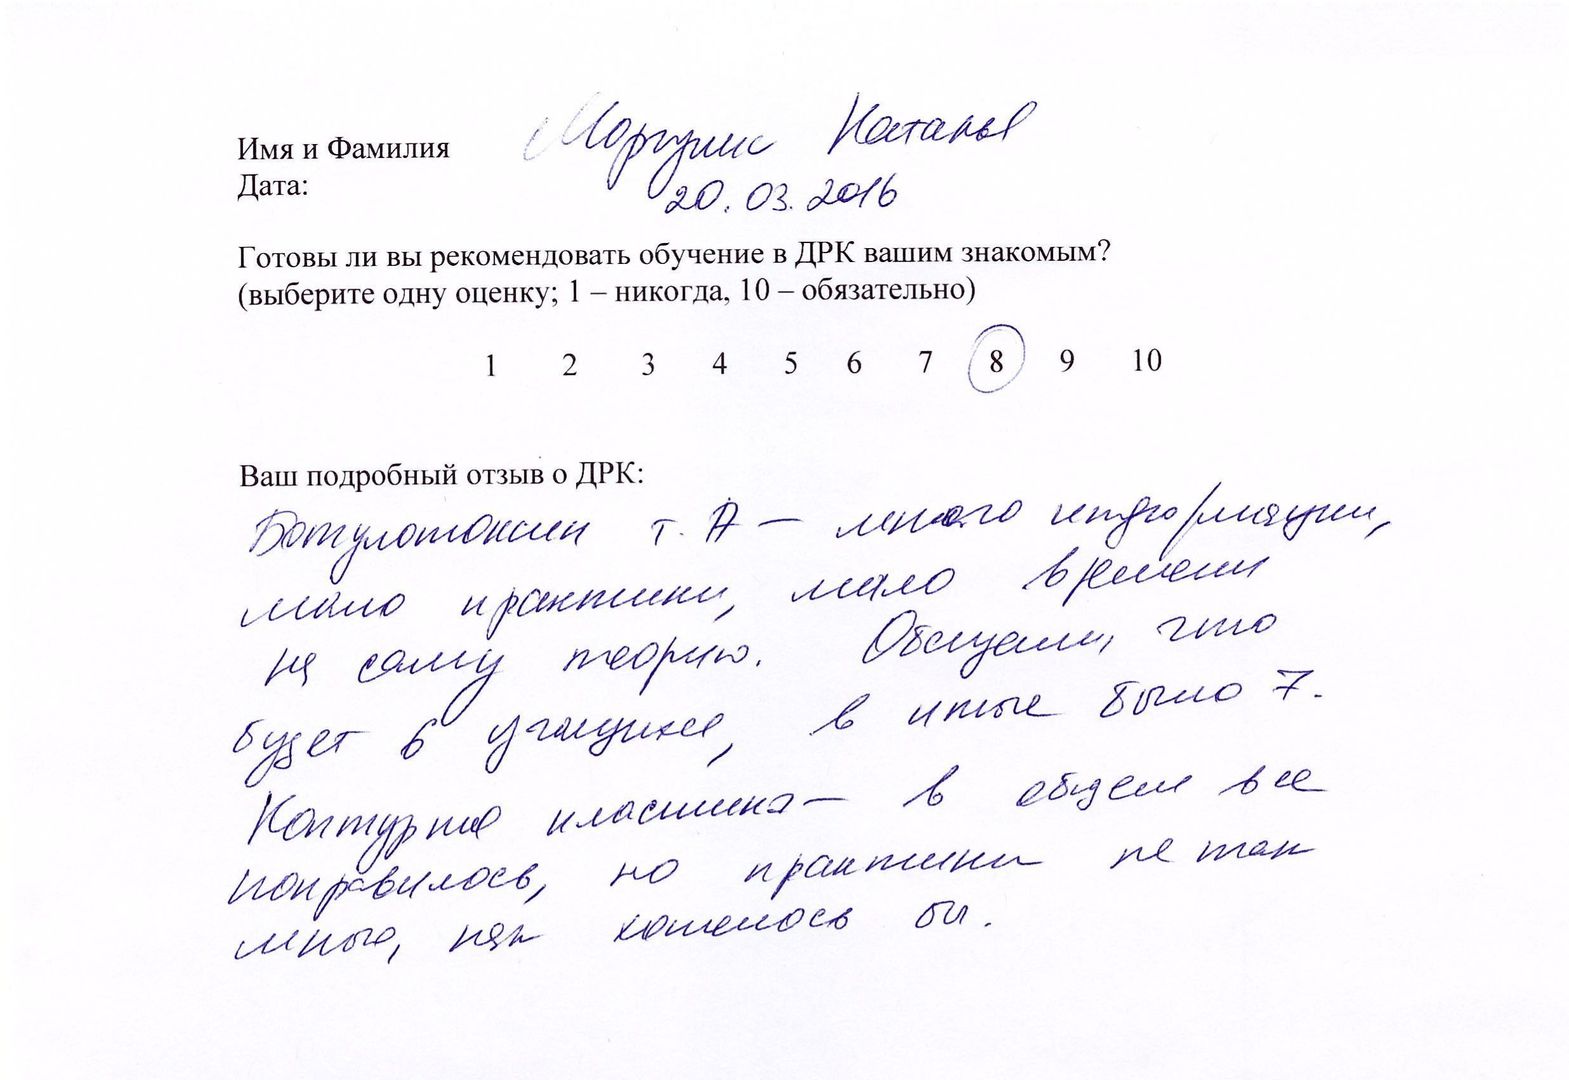 Имя и Фамилия Моргулис Наталья
Дата: 20.03.2016
Готовы ли вы рекомендовать обучение в ДРК вашим знакомым?
(выберите одну оценку; 1 – никогда, 10 – обязательно)
1 2 3 4 5 6 7 8 9 10
Ваш подробный отзыв о ДРК:
Ботулотоксин т. А — много информации,
мало практики, мало времени
на саму теорию. Обещали, что
будет 6 учащихся, в итоге было 7.
Контурная пластика — в общем все
понравилось, но практики не так
много, как хотелось бы.